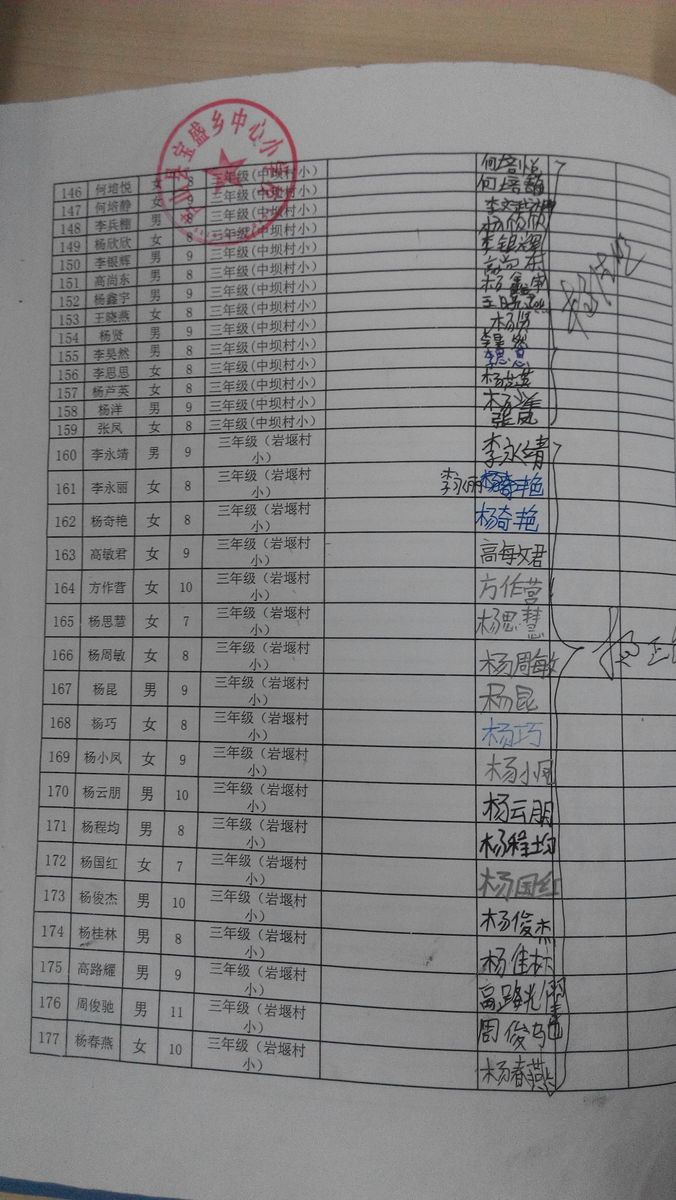 县宝盛乡中心小
146 何培悦 女 8 三年级(中坝村小) 何培悦
147 何培静 女 9 三年级(中坝村小) 何培静
148 李兵棚 男 8 三年级(中坝村小)
149 杨欣欣 女 8 三年级(中坝村小) 杨欣欣
150 李银辉 男 9 三年级(中坝村小) 李银辉
151 高尚东 男 8 三年级(中坝村小) 高尚东
152 杨鑫宇 男 9 三年级(中坝村小) 杨鑫宇
153 王晓燕 女 8 三年级(中坝村小) 王晓燕
154 杨贤 男 9 三年级(中坝村小) 杨贤
155 李昊然 男 8 三年级(中坝村小) 李昊然
156 李思思 女 8 三年级(中坝村小) 李思思
157 杨芦英 女 8 三年级(中坝村小) 杨芦英
158 杨洋 男 9 三年级(中坝村小) 杨洋
159 张凤 女 8 三年级(中坝村小) 张凤
160 李永靖 男 9 三年级（岩堰村小） 李永靖
161 李永丽 女 8 三年级（岩堰村小） 李永丽 杨奇艳
162 杨奇艳 女 8 三年级（岩堰村小） 杨奇艳
163 高敏君 女 9 三年级（岩堰村小） 高敏君
164 方作营 女 10 三年级（岩堰村小） 方作营
165 杨思慧 女 7 三年级（岩堰村小） 杨思慧
166 杨周敏 女 8 三年级（岩堰村小） 杨周敏
167 杨昆 男 9 三年级（岩堰村小） 杨昆
168 杨巧 女 8 三年级（岩堰村小） 杨巧
169 杨小凤 女 9 三年级（岩堰村小） 杨小凤
170 杨云朋 男 10 三年级（岩堰村小） 杨云朋
171 杨程均 男 8 三年级（岩堰村小） 杨程均
172 杨国红 女 7 三年级（岩堰村小） 杨国红
173 杨俊杰 男 10 三年级（岩堰村小） 杨俊杰
174 杨桂林 男 8 三年级（岩堰村小） 杨佳林
175 高路耀 男 9 三年级（岩堰村小） 高路耀
176 周俊驰 男 11 三年级（岩堰村小） 周俊驰
177 杨春燕 女 10 三年级（岩堰村小） 杨春燕